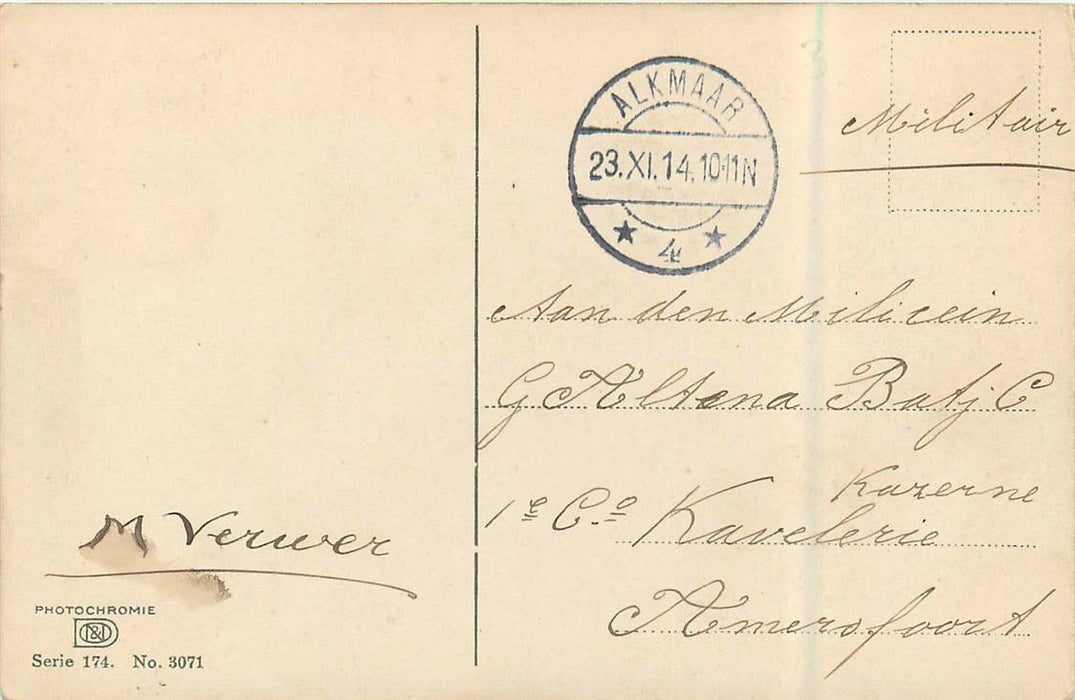 ALKMAAR
23.XI.14.10-11N
4
Militair
Aan den Milicein
G Altena Batj C
1e Co Kavelerie
Kazerne
Amersfoort
M Verwer
PHOTOCHROMIE
D N&D
Serie 174. No. 3071